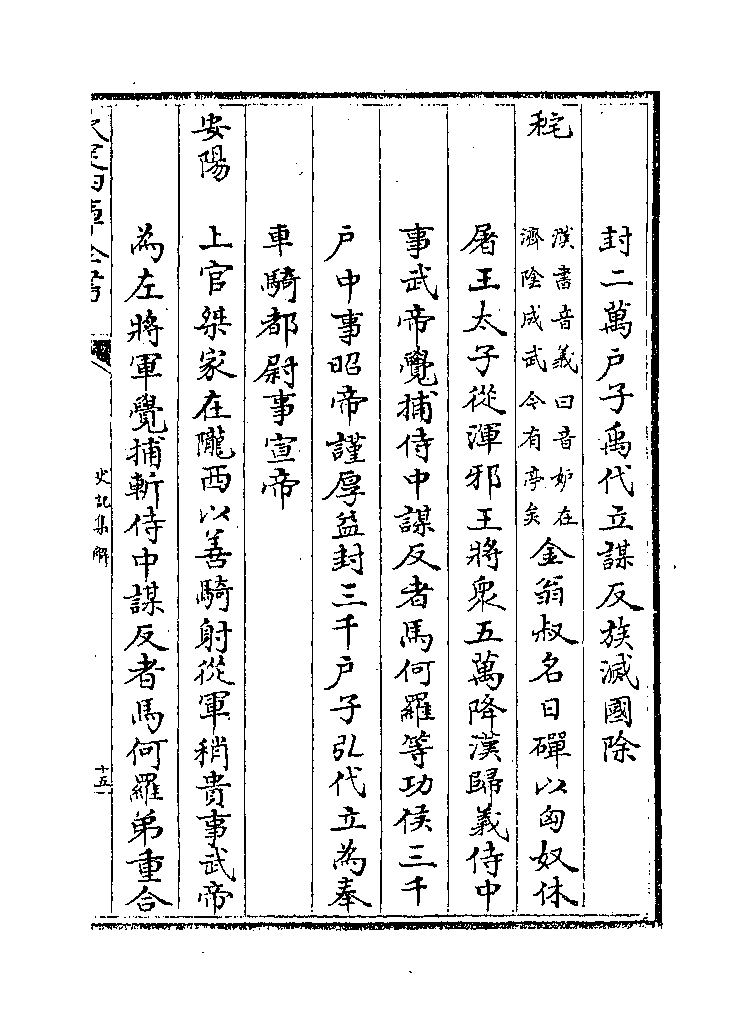 封二萬戶子禹代立謀反族滅國除
秺
漢書音義曰音妒在
濟隂成武今有亭矣
金翁叔名日磾以匈奴休
屠王太子從渾邪王將衆五萬降漢歸義侍中
事武帝覺捕侍中謀反者馬何羅等功侯三千
戶中事昭帝謹厚益封三千戶子弘代立為奉
車騎都尉事宣帝
安陽 上官桀家在隴西以善騎射從軍稍貴事武帝
為左將軍覺捕斬侍中謀反者馬何羅弟重合
欽定四庫全書
史記集解
十五